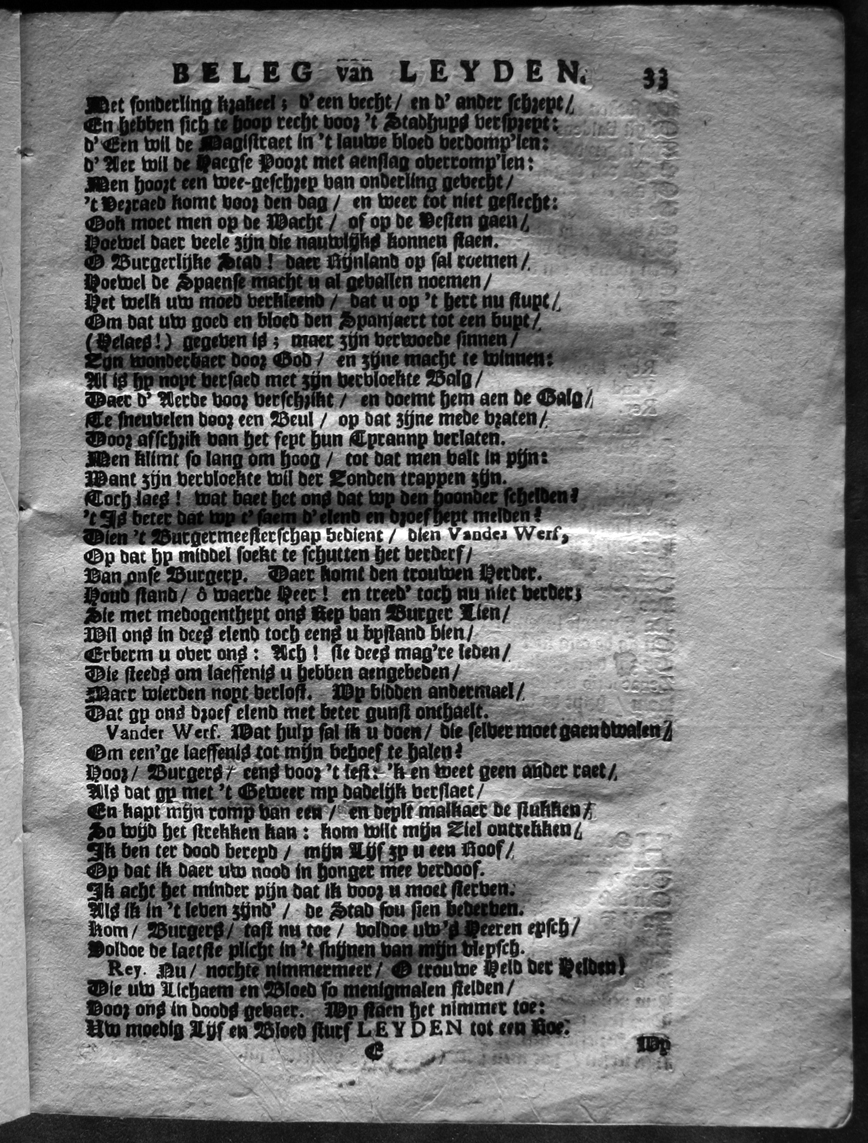 BELEG van LEYDEN. 33
Met sonderling krakeel; d'een vecht/ en d' ander schreyt/
En hebben sich te hoop recht voor 't Stadhuys verspreyt:
d' Een wil de Magistraet in 't lauwe bloed verdomp'len:
d' Aer wil de Haegse Poort met aenslag overromp'len:
Men hoort een wee-geschrey van onderling gevecht/
't Verraed komt voor den dag/ en weer tot niet geslecht:
Ook moet men op de Wacht/ of op de Vesten gaen/
Hoewel daer veele zijn die nauwlijks konnen staen.
O Burgerlijke Stad! daer Rijnland op sal roemen/
Hoewel de Spaense macht u al gevallen noemen/
Het welk uw moed verkleend/ dat u op 't hert nu stuyt/
Om dat uw goed en bloed den Spanjaert tot een buyt/
(Helaes!) gegeven is; maer zijn verwoede sinnen/
Zijn wonderbaer door God/ en zijne macht te winnen:
Al is hy noyt versaed met zijn vervloekte Balg/
Daer d' Aerde voor verschrikt/ en doemt hem aen de Galg/
Te sneuvelen door een Beul/ op dat zijne mede vraten/
Door afschrik van het feyt hun Tyranny verlaten.
Men klimt so lang om hoog/ tot dat men valt in pijn:
Want zijn vervloekte wil der Zonden trappen zijn.
Toch laes! wat baet het ons dat wy den hoonder schelden?
't Is beter dat wy t'saem d'elend en droefheyt melden?
Dien 't Burgermeesterschap bedient/ dien Vander Werf,
Op dat hy middel soekt te schutten het verderf/
Van onse Burgery. Daer komt den trouwen Herder.
Houd stand/ ô waerde Heer! en treed' toch nu niet verder;
Sie met medogentheyt ons Rey van Burger Lien/
Wil ons in dees elend toch eens u bystand bien/
Erberm u over ons: Ach! sie dees mag're leden/
Die steeds om laeffenis u hebben aengebeden/
Maer wierden noyt verlost. Wy bidden andermael/
Dat gy ons droef elend met beter gunst onthaelt.
Vander Werf. Wat hulp sal ik u doen/ die selver moet gaen dwalen/
Om een'ge laeffenis tot mijn behoef te halen?
Hoor/ Burgers/ eens voor 't lest: 'k en weet geen ander raet/
Als dat gy met 't Geweer my dadelijk verslaet/
En kapt mijn romp van een/ en deylt malkaer de stukken/
So wijd het strekken kan: kom wilt mijn Ziel ontrekken/
Ik ben ter dood bereyd/ mijn Lijf zy u een Roof/
Op dat ik daer uw nood in honger mee verdoof.
Ik acht het minder pijn dat ik voor u moet sterven.
Als ik in 't leven zijnd'/ de Stad sou sien bederven.
Kom/ Burgers/ tast nu toe/ voldoe uw's Heeren eysch/
Voldoe de laetste plicht in 't snijnen van mijn vleysch.
Rey. Nu/ nochte nimmermeer/ O trouwe Held der Helden!
Die uw Lichaem en Bloed so menigmalen stelden/
Voor ons in doods gevaer. Wy staen het nimmer toe:
Uw moedig Lijf en Bloed sturf LEYDEN tot een Roe.
C Wy